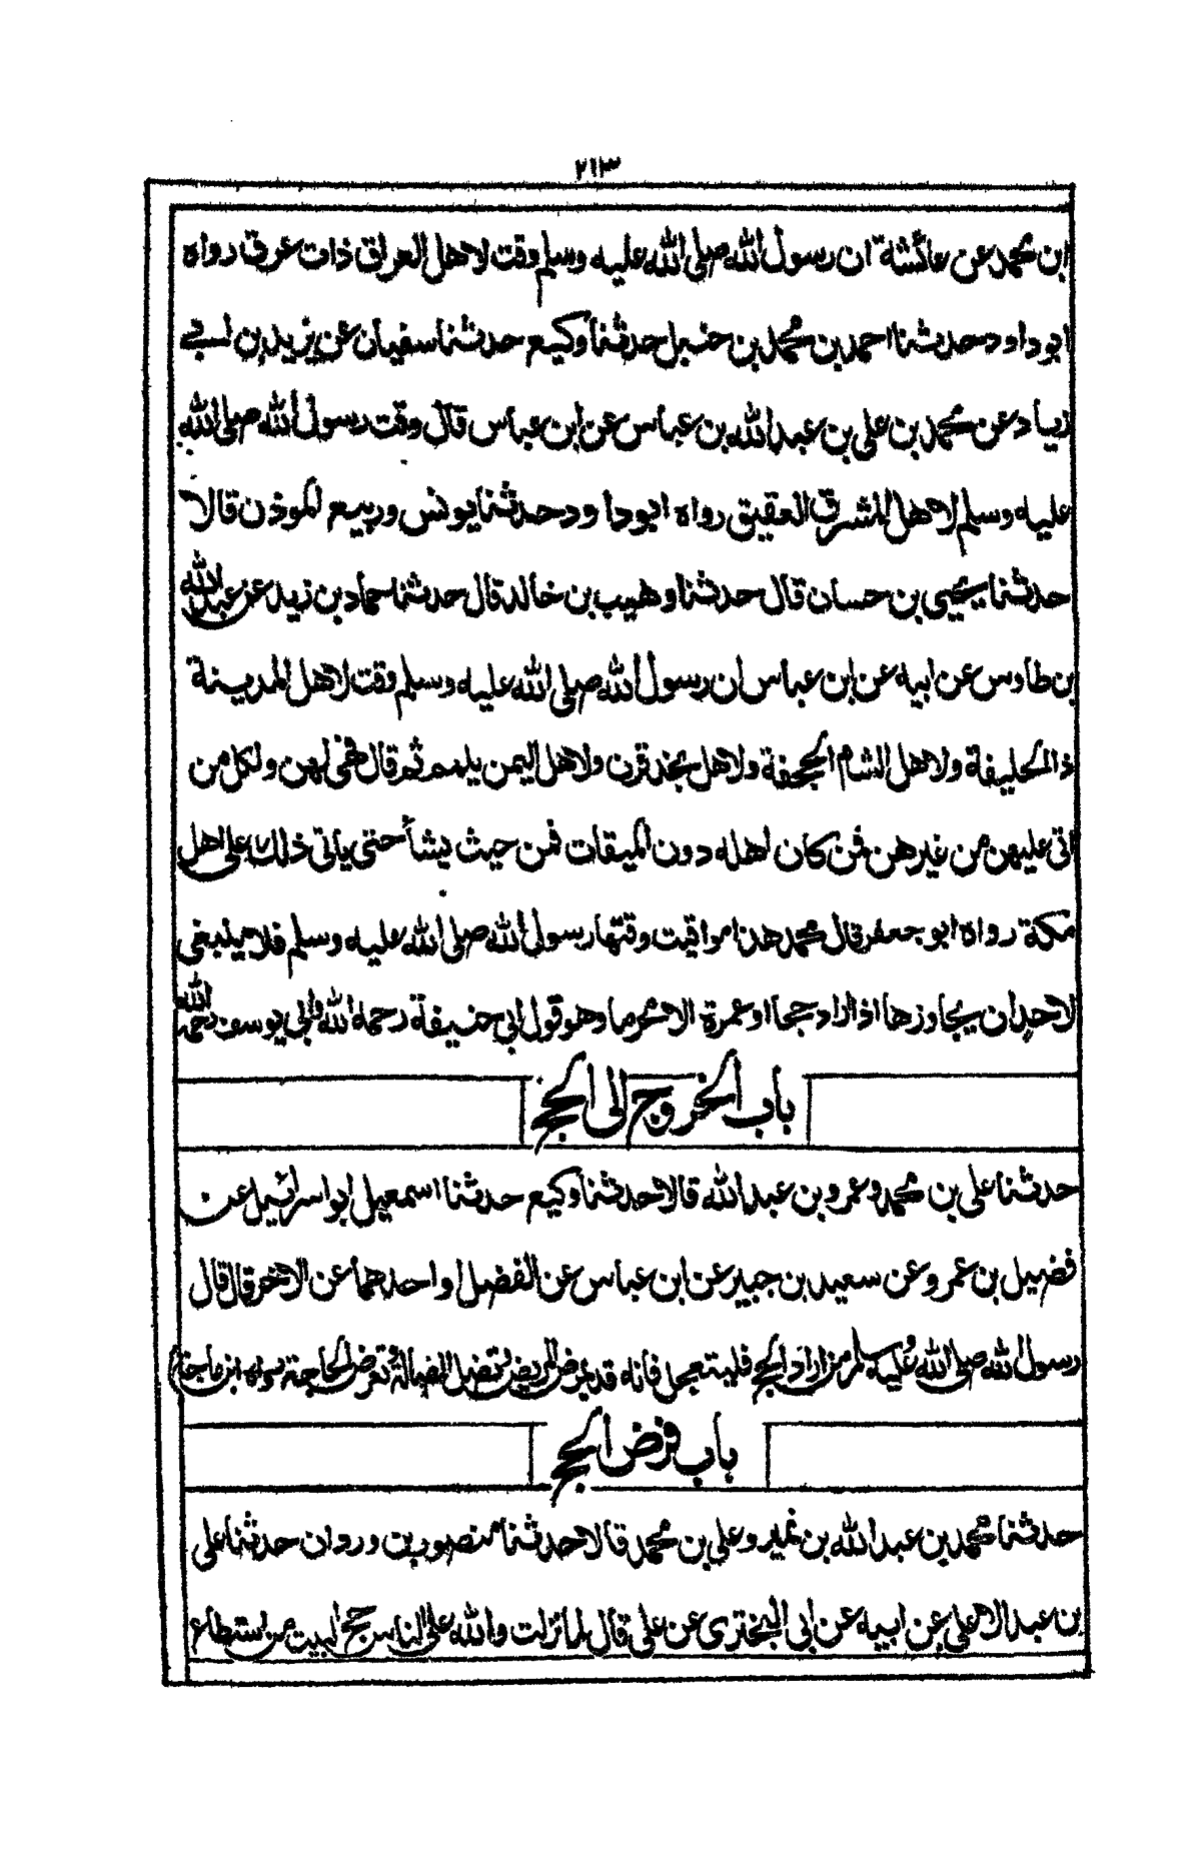 ٢١٣
ابن محمد عن عائشة ان رسول الله صلى الله عليه وسلم وقت لاهل العراق ذات عرق رواه
ابوداود حدثنا احمد بن محمد بن حنبل حدثنا وكيع حدثنا سفيان عن يزيد بن ابي
زياد عن محمد بن علي بن عبد الله بن عباس عن ابن عباس قال وقت رسول الله صلى الله
عليه وسلم لاهل المشرق العقيق رواه ابوداود حدثنا يونس وربيع المؤذن قالا
حدثنا يحيى بن حسان قال حدثنا وهيب بن خالد قال حدثنا حماد بن زيد عن عبد الله
بن طاوس عن ابيه عن ابن عباس ان رسول الله صلى الله عليه وسلم وقت لاهل المدينة
ذالحليفة ولاهل الشام الجحفة ولاهل نجد قرن ولاهل اليمن يلملم ثم قال فهي لهن ولكل من
اتى عليهن من غيرهن فمن كان اهله دون الميقات فمن حيث ينشأ حتى ياتي ذلك على اهل
مكة رواه ابو جعفر قال محمد هذا مواقيت وقتها رسول الله صلى الله عليه وسلم فلا ينبغي
لاحد ان يجاوزها اذا اراد حجا او عمرة الا محرما وهو قول ابي حنيفة رحمه الله وابي يوسف رحمه الله
باب الخروج الى الحج
حدثنا علي بن محمد وعمرو بن عبد الله قالا حدثنا وكيع حدثنا اسمعيل ابو اسرائيل عن
فضيل بن عمرو عن سعيد بن جبير عن ابن عباس عن الفضل او احدهما عن الاخر قال قال
رسول الله صلى الله عليه وسلم من اراد الحج فليتعجل فانه قد يمرض المريض وتضل الضالة وتعرض الحاجة رواه ابن ماجة
باب فرض الحج
حدثنا محمد بن عبد الله بن نمير وعلي بن محمد قالا حدثنا منصور بن وردان حدثنا علي
بن عبد الاعلى عن ابيه عن ابي البختري عن علي قال لما نزلت ولله على الناس حج البيت من استطاع